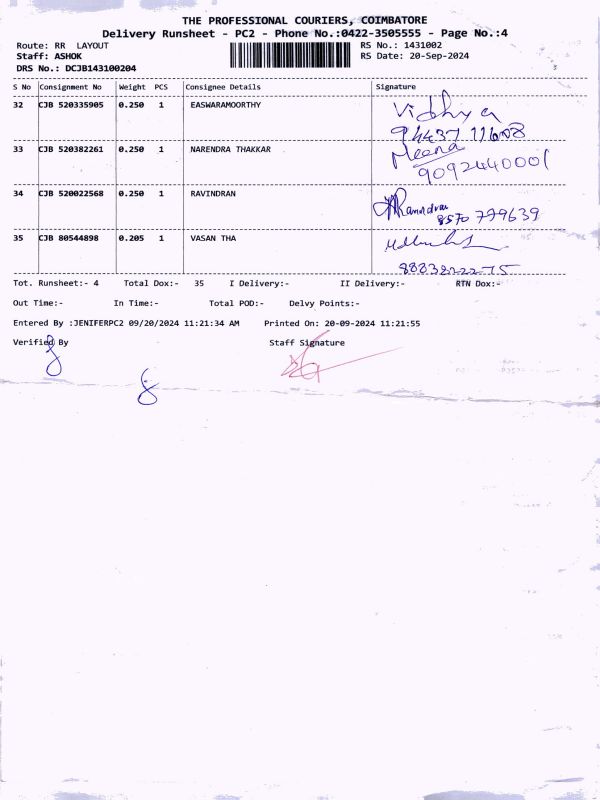 THE PROFESSIONAL COURIERS, COIMBATORE
Delivery Runsheet - PC2 - Phone No.:0422-3505555 - Page No.:4
Route: RR LAYOUT RS No.: 1431002
Staff: ASHOK RS Date: 20-Sep-2024
DRS No.: DCJB143100204
S No Consignment No Weight PCS Consignee Details Signature
32 CJB 520335905 0.250 1 EASWARAMOORTHY Vidhya
33 CJB 520382261 0.250 1 NARENDRA THAKKAR Meena
9092440001
34 CJB 520022568 0.250 1 RAVINDRAN Ravindran
8570 799639
35 CJB 80544898 0.205 1 VASAN THA
8883822275
Tot. Runsheet:- 4 Total Dox:- 35 I Delivery:- II Delivery:- RTN Dox:-
Out Time:- In Time:- Total POD:- Delvy Points:-
Entered By :JENIFERPC2 09/20/2024 11:21:34 AM Printed On: 20-09-2024 11:21:55
Verified By Staff Signature